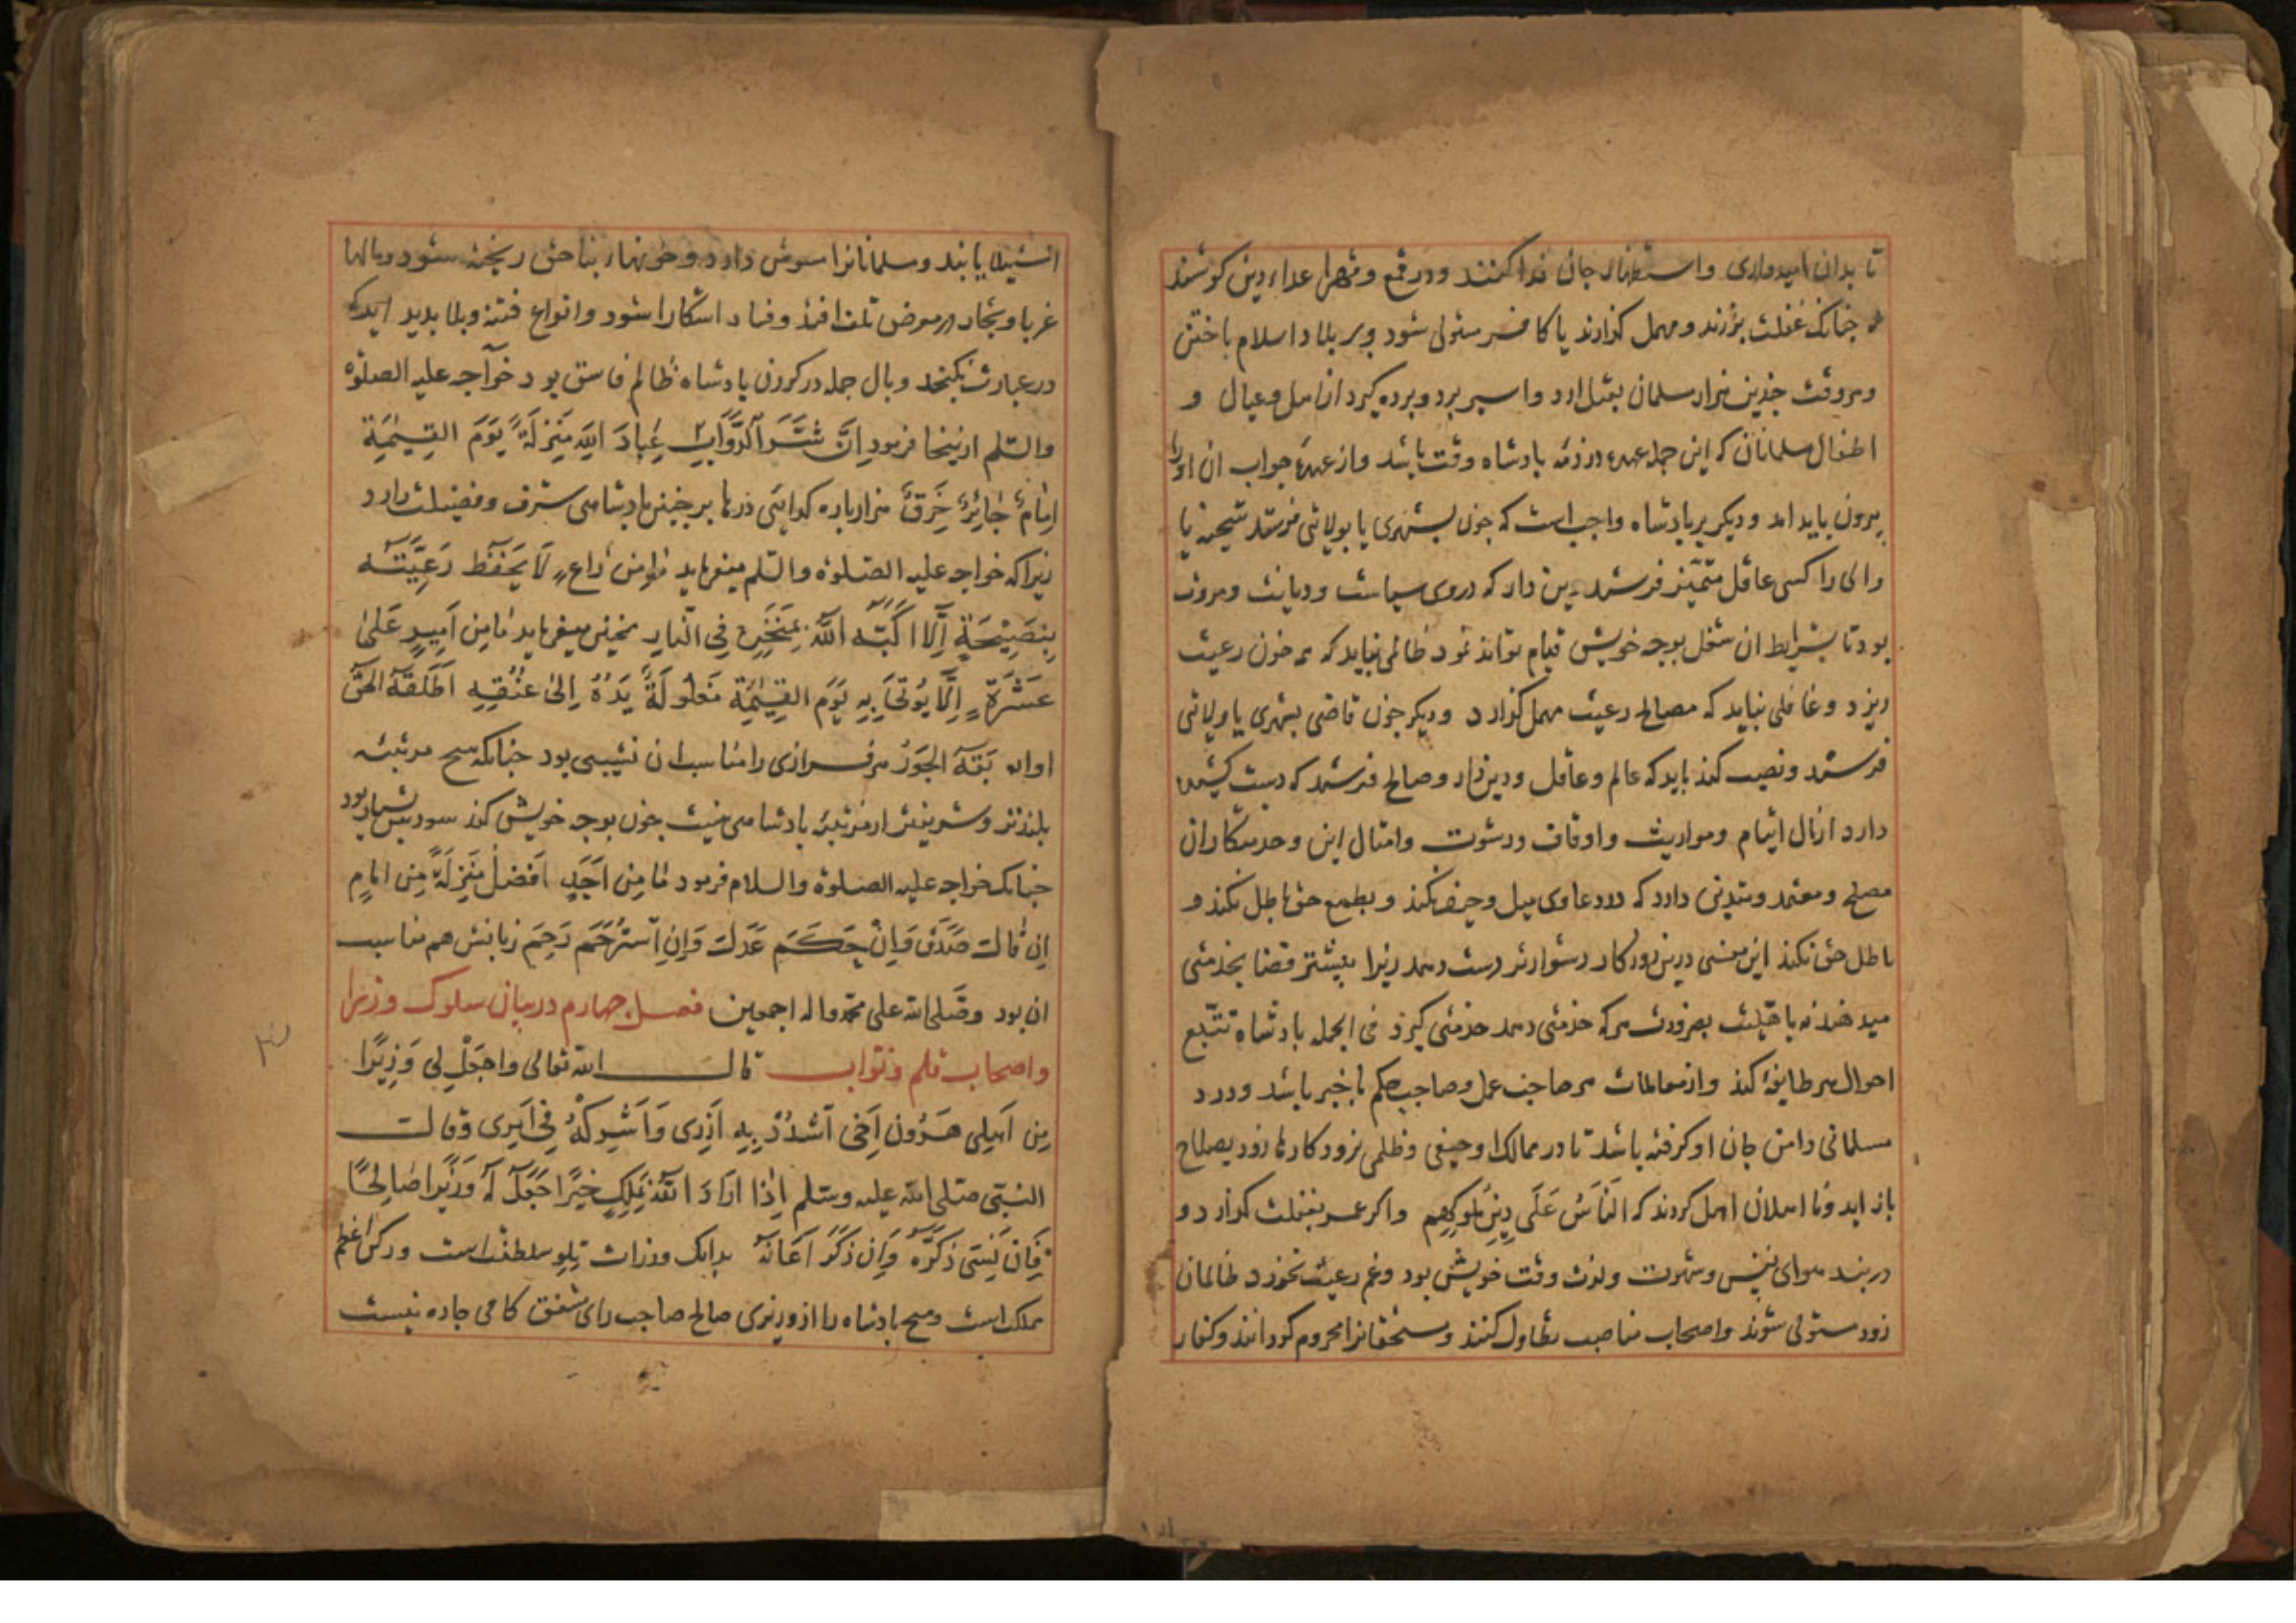 تا بدان امیدواری واستظهار جان فدا کنند ودر قمع وقهر اعداء دین کوشند
جنانک غفلت برزند ومهمل کذارند یا کافر مستولی شود وبر بلاد اسلام باختن
وهر وقت جندین هزار مسلمان بقتل ارد واسیر برد وبرده کیرد از اهل وعیال و
اطفال مسلمانان که این جمله عهده در ذمّه بادشاه وقت باشد واز عهدهٔ جواب ان اورا
بیرون باید امد ودیکر بر بادشاه واجب است که جون بشهری یا بولایتی فرستد شحنه یا
والی را کسی عاقل متمیّز فرستد دین دار که در وی سیاست ودیانت ومروت
بود تا بشرایط ان شغل بوجه خویش قیام تواند نمود ظالمی نباید که خون رعیت
ریزد وغافلی نباید که مصالح رعیت مهمل کذارد ودیکر جون قاضی بشهری یا ولایتی
فرستد ونصب کند باید که عالم وعاقل ودیندار وصالح فرستد که دست کشیده
دارد از مال ایتام ومواریث واوقاف ورشوت وامثال این وخدمتکاران
مصلح ومعتمد ومتدین دارد که در دعاوی میل وحیف نکند وبطمع حق باطل نکند و
باطل حق نکند این معنی درین روزکار دشوارتر دست دهد زیرا بیشتر قضا بخدمتی
میدهند نه باهلیت بضرورت هرکه خدمتی دهد خدمتی کیرد فی الجمله بادشاه تتبّع
احوال هر طایفهٔ کند واز معاملات هر صاحب عمل وصاحب حکم باخبر باشد ودرد
مسلمانی دامن جان او کرفته باشد تا در ممالک او حیفی وظلمی نرود کارها زود بصلاح
باز اید ونا اهلان اهل کردند که اَلنَّاسُ عَلَی دِینِ مُلُوکِهِم واکر عمر بغفلت کذارد و
در بند هوای نفس وشهوت ولذت وقت خویش بود وغم رعیت نخورد ظالمان
زود مستولی شوند واصحاب مناصب تطاول کنند ومستحقانرا محروم کردانند وکفار
استیلا یابند ومسلمانانرا مشوش دارد وخونها بناحق ریخته شود ومالها
غربا وتجار در معرض تلف افتد وفساد اشکارا شود وانواع فتنه وبلا بدید اید که
در عبارت نکنجد وبال جمله در کردن بادشاه ظالم فاسق بود خواجه علیه الصلوة
والسّلم ازینجا فرمود اِنَّ شَرَّ الدَّوَابِّ عِبادَ اللّهِ مَنْزِلَةً یَوْمَ القِیٰمَةِ
اِمَامٌ جَائِرٌ خَرِقٌ هزار باره کوایتی درها بر جنین بادشاهی شرف وفضیلت دارد
زیرا که خواجه علیه الصّلوة والسّلم میفرماید مَامِن رَاعٍ لَا یَحْفَظ رَعِیَّتَهُ
بِنَصِیْحَةٍ اِلَّا اَکَبَّهُ اللّٰهُ بِمَنْخَرِهِ فِی النَّارِ همجنین میفرماید مَامِن اَمِیرٍ عَلیٰ
عَشَرَةٍ اِلَّا یُوتَیٰ بِهِ یَوْمَ القِیٰمَةِ مَغْلُولَةً یَدُهُ اِلیٰ عُنُقِهِ اَطْلَقَهُ الحَقُّ
او اوبَقَهُ الجَوْرُ هر فرازی را مناسب ان نشیبی بود جنانکه هیج مرتبه
بلندتر وشریفتر از مرتبهٔ بادشاهی نیست جون بوجه خویش کند سودش بسیار بود
جنانک خواجه علیه الصلوة والسلام فرمود مَامِن اَحَدٍ اَفْضَلُ مَنْزِلَةً مِن اِمَامٍ
اِن قَالَ صَدَقَ وَاِنْ حَکَمَ عَدَلَ وَاِنِ اسْتُرْحِمَ رَحِمَ زیانش هم مناسب
ان بود وصَلی الله علی محمد واله اجمعین فصل جهارم در بیان سلوک وزرا
واصحاب قلم ونواب قال الله تعالی واجعَلْ لِی وَزِیرًا
مِن اَهْلِی هَرُونَ اَخِی اُشْدُدْ بِهِ اَزْرِی وَاَشْرِکْهُ فِی اَمْرِی وقال
النَّبی صَلی الله علیه وسَلم اِذَا اَرَادَ اللّٰهُ بِمَلِکٍ خَیْرًا جَعَلَ لَهُ وَزِیْرًا صَالِحًا
فَاِن نَسِیَ ذَکَّرَهُ وَاِن ذَکَرَ اَعَانَهُ بدانک وزارت تلو سلطنت است ورکن اعظم
مملکت است وهیج بادشاه را از وزیری صالح صاحب رای مشفق کافی جاره نیست